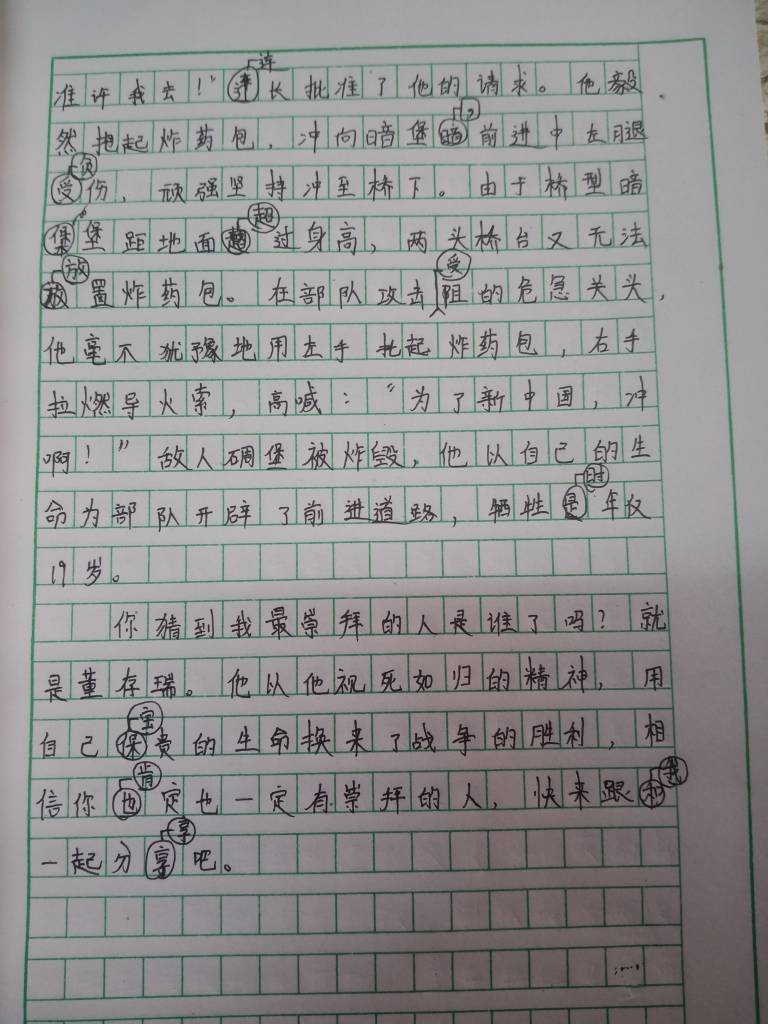 准许我去！”连长批准了他的请求。他毅
然抱起炸药包，冲向暗堡，前进中左腿
负伤，顽强坚持冲至桥下。由于桥型暗
堡距地面超过身高，两头桥台又无法
放置炸药包。在部队攻击受阻的危急关头，
他毫不犹豫地用左手托起炸药包，右手
拉燃导火索，高喊：“为了新中国，冲
啊！”敌人碉堡被炸毁，他以自己的生
命为部队开辟了前进道路，牺牲时年仅
19岁。
你猜到我最崇拜的人是谁了吗？就
是董存瑞。他以他视死如归的精神，用
自己宝贵的生命换来了战争的胜利，相
信你肯定也一定有崇拜的人，快来跟我
一起分享吧。